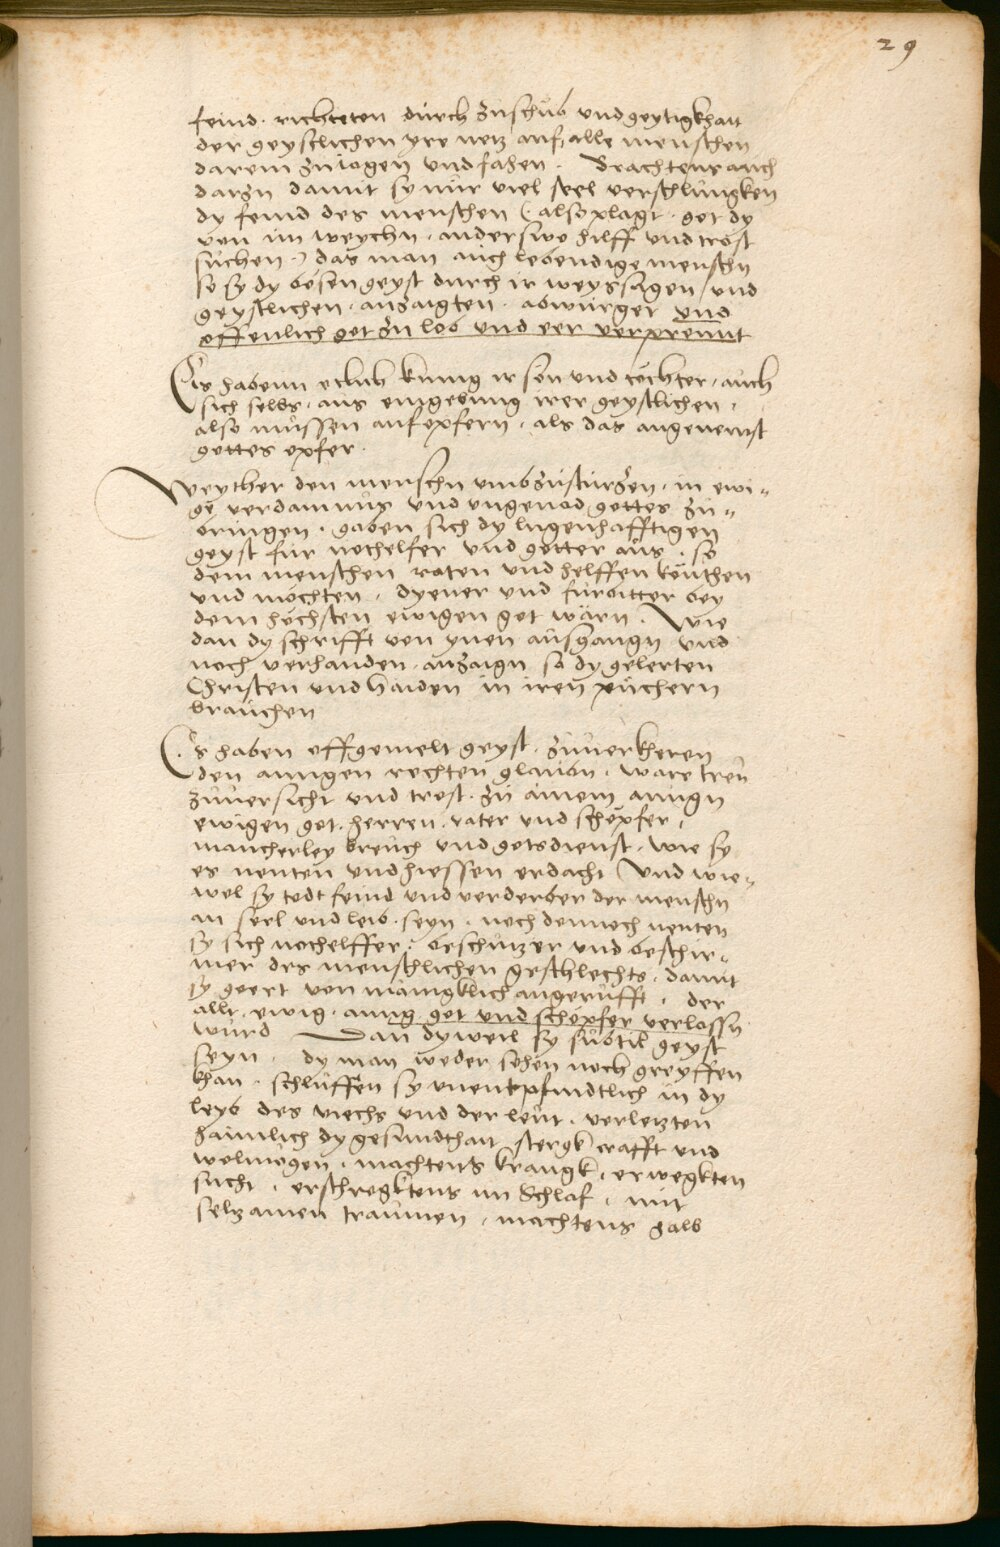 29
feind. richteten durch zuschub und geytigkhait
der geystlichen yre netz auf, alle menschen
darein zulogen und fahen. Trachtens auch
darzu damit sy nur viel seel verschlungken
dy feind des menschen (: also plagt got dy
von im weychn, anderswo hilff und trost
suchen :) das man auch lebendige menschn
so sy dy bösen geyst durch ir weyssagen / und
geystlichen, anzaigten, abwürget und
offenlich got zu lob und eer verprennt
Es habenn etlich künig ir sön und töchter, auch
sich selbs, aus eingebung irer geystlichen,
also müssen aufopfern, als das angenemst
gottes opfer.
Weyther den menschn umbzustürzen, in ewi„
ge verdamnus und ungenad gottes zu„
bringen, gaben sich dy lugenhafftigen
geyst für nothelfer und götter aus, so
dem menschen raten und helffen könthen
und möchten, dyener und fürbitter bey
dem höchsten ewigen got wärn. Wie
dan dy schrifft von ynen ausgangn und
noch verhanden, anzaign so dy gelerten
Christen und haiden in iren püchern
brauchen
Es haben offgemelt geyst, zuuerkheren
den ainigen rechten glaubn, ware treu
zuuersicht und trost, zu ainem ainign
ewigen got, herren, vater und schöpfer,
mancherley breuch und gotsdienst, wie sy
es nenten und hiessen erdacht Und wie„
wol sy todt feind und verderber der menschn
an seel und leib, seyn, noch dennoch nenten
sy sich nothelffer, beschützer und beschir„
mer des menschlichen geschlechts, damit
sy geert von mänigklich angerufft, der
allt, ewig, ainig got und schöpfer verlassn
wurd Dan dyweil sy subtil geyst
seyn, dy man weder sehen noch greyffen
khan, schluffen sy unentpfindtlich in dy
leyb des viechs und der leut, verletzten
haimlich dy gesundthait stergk crafft und
wolmogen, machtens krangk, erwegkten
sucht, erschregktens im Schlaf, mit
selzamen traumen, machtens halb